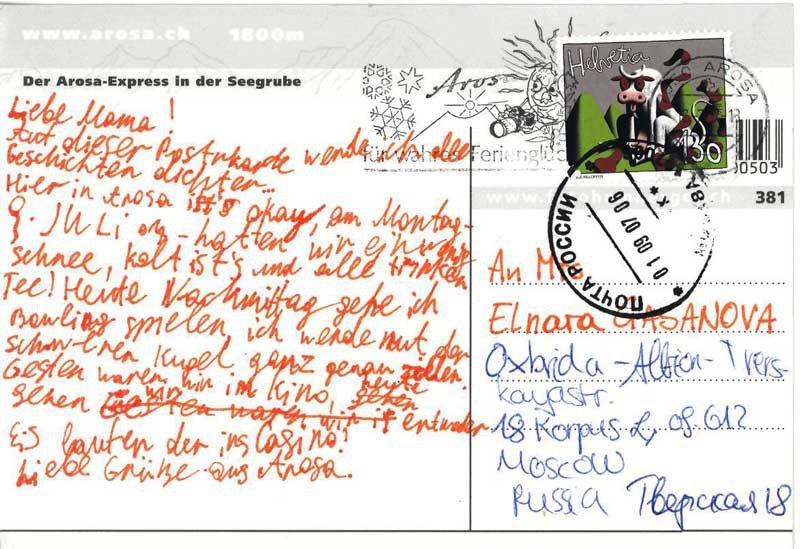 www.arosa.ch 1800m
Der Arosa-Express in der Seegrube
Liebe Mama!
Auf dieser Postkarte werde ich alle
Geschichten dichten...
Hier in Arosa ist's okay, am Montag-
9. JULi org - hatten wir
schnee, kalt ist's und alle trinken
Tee! Heute Nachmittag gehe ich
Bowling spielen ich werde mit der
schweren Kugel ganz genau zielen.
Gestern waren wir im Kino, heute
gehen entweder
Eis laufen oder ins Casino!
Liebe Grüße aus Arosa.
Arosa
für wahres Ferienglück
Helvetia
130
AROSA
00503
381
ПОЧТА РОССИИ
01 09 07 06
An Mrs
Elnara GASANOVA
Oxbrida-Albion-Tvers-
kayastr.
18 Korpus 2, of 612
Moscow
Russia Тверская 18